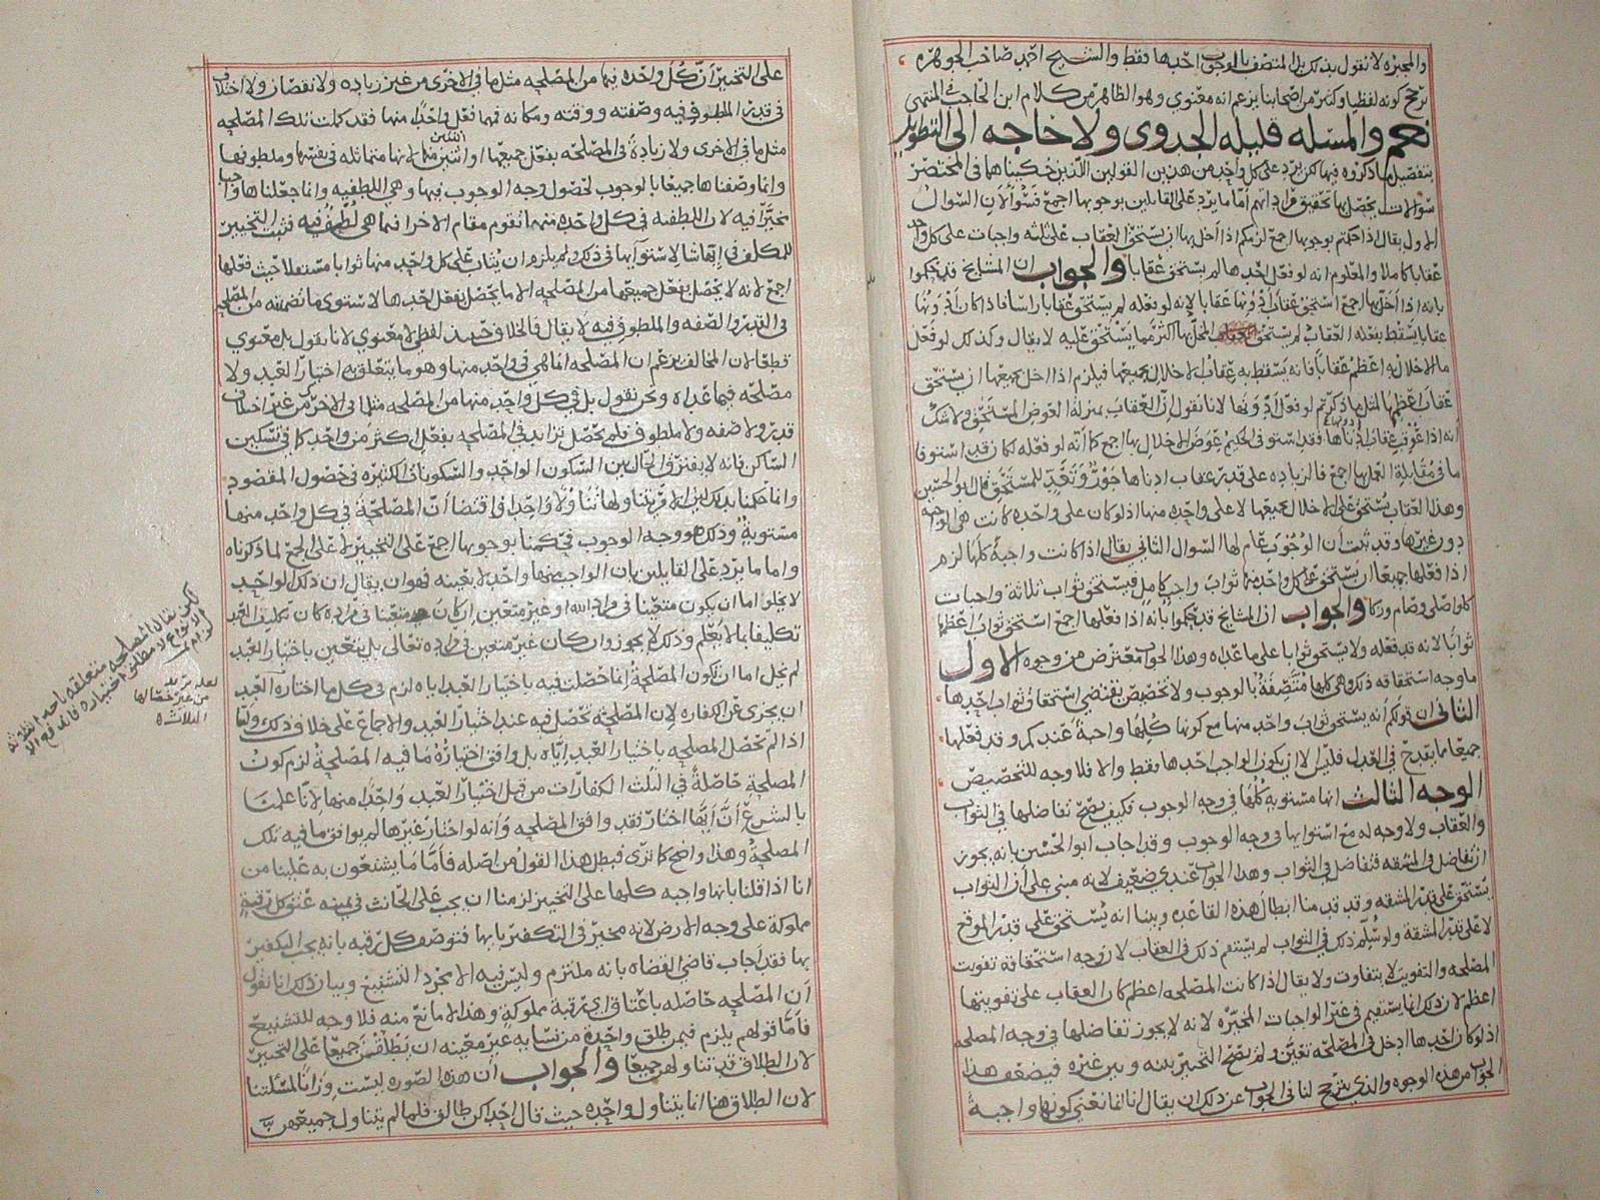 والمجبره لا نقول بذلك بل المتصف بالوجوب احدها فقط والشيخ احمد صاحب الجوهره
يرجح كونه لفظيا وكثير من اصحابنا يزعم انه معنوي وهو الظاهر من كلام ابن الحاجب في المنتهى
نعم والمسله قليله الجدوى ولا حاجه الى التطويل
بتفصيل ما ذكروه فيها لكن يرد على كل واحد من هذين القولين اللذين حكيناهما في المختصر
سوالات يحصل بها تحقيق مرادهم اما ما يرد على القايلين بوجوبها اجمع فسوالان السوال
الاول يقال اذا حكمتم بوجوبها اجمع لزمكم اذا اخل بها ان يستحق العقاب على ثلثه واجبات على كل واحد
عقابا كاملا والمعلوم انه لو فعل احدها لم يستحق عقابا والجواب ان المشايخ قد حكموا
بانه اذا اخل بها اجمع استحق عقاب ادونها عقابا لانه لو فعله لم يستحق عقابا راسا فاذا كان ادونها
عقابا يسقط بفعله العقاب لم يستحق المخل بها اكثر مما يستحق عليه لا يقال وكذلك لو فعل
ما الاخلال به اعظم عقابا فانه يسقط به عقاب الاخلال بجميعها فيلزم اذا اخل بجميعها ان يستحق
عقاب اعظمها لمثل ما ذكرتم لو فعل ادونها لانا نقول ان العقاب بمنزلة العوض المستحق ولا شك
انه اذا عوقب عقاب ادناها فقد استوفى الحكيم عوض الاخلال بها اجمع كما انه لو فعله لكان قد استوفا
ما في مقابلة اخلالها اجمع فالزياده على قدر عقاب ادناها جور وتعد للمستحق قال ابو الحسين
وهذا العقاب يستحق على الاخلال بجميعها لا على واحده منها اذ لو كان على واحده كانت هي الواجبه
دون غيرها وقد ثبت ان الوجوب عام لها السوال الثاني يقال اذا كانت واجبة كلها لزم
اذا فعلها جميعا ان يستحق على كل واحد منها ثواب واجب كامل فيستحق ثواب ثلاثه واجبات
كما لو صلى وصام وزكا والجواب ان المشايخ قد حكموا بانه اذا فعلها اجمع استحق ثواب اعظمها
ثوابا لانه قد فعله ولا يستحق ثوابا على ما عداه وهذا الجواب معترض من وجوه الاول
ما وجه استحقاقه ذلك وهي كلها متصفة بالوجوب ولا تخصص يقتضي استحقاق ثواب احدها
الثاني ان قولكم انه يستحق ثواب واحد منها مع كونها كلها واجبة عندكم وقد فعلها
جميعا ما يقدح في العدل فليس الا ان يكون الواجب احدها فقط والا فلا وجه للتخصيص
الوجه الثالث انها مستويه كلها في وجه الوجوب فكيف يصح تفاضلها في الثواب
والعقاب ولا وجه له مع استوايها في وجه الوجوب وقد اجاب ابو الحسين بانه يجوز
ان تفاضل في المشقه فتفاضل في الثواب وهذا الجواب عندي ضعيف لانه مبني على ان الثواب
يستحق على قدر المشقه وقد قدمنا ابطال هذه القاعده وبينا انه يستحق على قدر الموقع
لا على قدر المشقة ولو سلم ذلك في الثواب لم يستقم ذلك في العقاب لان وجه استحقاقه تفويت
المصلحه والتفويت لا يتفاوت ولا يقال اذا كانت المصلحه اعظم كان العقاب على تفويتها
اعظم لان ذلك انما يستقيم في غير الواجبات المخيره لانه لا يجوز تفاضلها في وجه المصلحه
اذ لو كان احدها ادخل في المصلحه تعين ولم يصح التخيير بينه وبين غيره فيضعف هذا
الجواب من هذه الوجوه والذي يترجح لنا في الجواب عن ذلك ان يقال انا انما نعني كونها واجبة
على التخيير ان كل واحده فيها من المصلحه مثل ما في الاخرى من غير زياده ولا نقصان ولا اختلاف
في قدر الملطوف فيه وصفته ووقته ومكانه فمهما فعل واحدا منها فقد كملت تلك المصلحه
مثل ما في الاخرى ولا زيادة في المصلحه بفعل جميعها او اثنين منها اذ انها متماثله في نفسها وملطوفها
وانما وصفناها جميعا بالوجوب لحصول وجه الوجوب فيها وهي اللطفيه وانما جعلناها واجبا
مخيرا فيه لان اللطفيه في كل واحده منهما تقوم مقام الاخرى فيما هي لطف فيه فثبت التخيير
للمكلف في ايها شا لاستوايها في ذلك ولم يلزم ان يثاب على كل واحد منها ثوابا مستقلا حيث فعلها
اجمع لانه لا يحصل بفعل جميعها من المصلحه الا ما يحصل بفعل احدها لاستوى ما تضمنته من المصلحه
في القدر والصفه والملطوف فيه لا يقال فالخلاف حينيذ لفظي لا معنوي لانا نقول بل معنوي
قطعا لان المخالف يزعم ان المصلحه انما هي في واحد منها وهو ما يتعلق به اختيار العبد ولا
مصلحه فيما عداه ونحن نقول بل في كل واحد منها من المصلحه مثل ما في الاخر من غير اختلاف
قدر ولا صفه ولا ملطوف فلم يحصل تزايد في المصلحه بفعل اكثر من واحد كما في تسكين
الساكن فانه لا يفترق الحال بين السكون الواحد والسكونات الكثيره في حصول المقصود
وانما حكمنا بذلك لان الامر تناولها تناولا واحدا فاقتضا ان المصلحة في كل واحد منها
مستوية وذلك هو وجه الوجوب فحكمنا بوجوبها اجمع على التخيير لا على الجمع لما ذكرناه
واما ما يرد على القايلين بان الواجب منها واحد لا بعينه فهو ان يقال ان ذلك الواحد
لا يخلوا اما ان يكون متعينا في مراد الله او غير متعين ان كان متعينا في مراده كان تكليف العبد
تكليفا بما لا يعلم وذلك لا يجوز وان كان غير متعين في مراده تعالى بل يتعين باختيار العبد
لم يخل اما ان تكون المصلحة انما حصلت فيه باختيار العبد اياه لزم في كل ما اختاره العبد
ان يجزى عن الكفاره لان المصلحه تحصل فيه عند اختيار العبد والاجماع على خلاف ذلك واما
اذا لم تحصل المصلحه باختيار العبد اياه بل وافق اختياره ما فيه المصلحة لزم كون
المصلحة حاصلة في الثلث الكفارات من قبل اختيار العبد واحدا منها لانا علمنا
بالشرع ان ايها اختار فقد وافق المصلحه وانه لو اختار غيرها لم يوافق ما فيه تلك
المصلحة وهذا واضح كما ترى فبطل هذا القول من اصله فاما ما يشنعون به علينا من
انا اذا قلنا بانها واجبه كلها على التخيير لزمنا ان يجب على الحانث في يمينه عتق كل رقبة
مملوكة على وجه الارض لانه مخير في التكفير بايها فتوصف كل رقبه بانه يجب التكفير
بها فقد اجاب قاضي القضاه بانه ملتزم وليس فيه الا مجرد التشنيع وبيان ذلك انا نقول
ان المصلحه حاصله باعتاق اي رقبة مملوكة وهذا لا مانع منه فلا وجه للتشنيع
فاما قولهم يلزم فيمن طلق واحدة من نسايه غير معينه ان يطلقن جميعا على التخيير
لان الطلاق قد تناولهن جميعا والجواب ان هذه الصوره ليست وزانا لمسئلتنا
لان الطلاق هنا انما يتناول واحده حيث قال احداكن طالق فلما لم يتناول جميعهن
لكن يقال المصلحه متعلقه باحد الثلاثه
الانواع لا مطلق اختياره فاندفع الا
لزام تمت
لعله يريد
من غير خصالها
الثلاثه